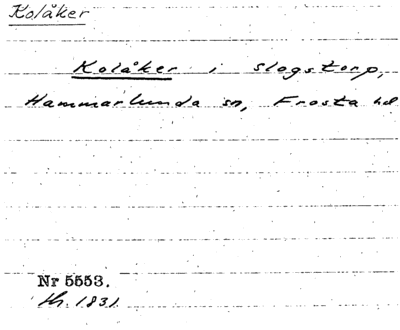 Kolåker
Kolåker i Slogstorp,
Hammarlunda sn, Frosta hd
Nr 5553.
th. 1831